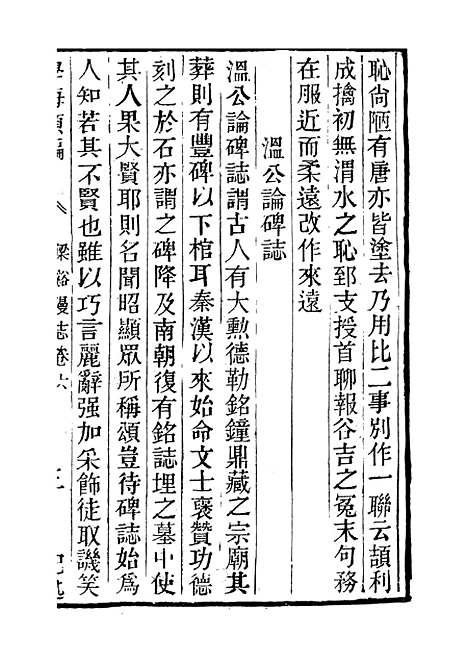 恥尙陋有唐亦皆塗去乃用比二事別作一聯云頡利
成擒初無渭水之恥郅支授首聊報谷吉之冤末句務
在服近而柔遠改作來遠
溫公論碑誌
溫公論碑誌謂古人有大勲德勒銘鐘鼎藏之宗廟其
葬則有豐碑以下棺耳秦漢以來始命文士褒贊功德
刻之於石亦謂之碑降及南朝復有銘誌埋之墓中使
其人果大賢耶則名聞昭顯眾所稱頌豈待碑誌始爲
人知若其不賢也雖以巧言麗辭强加采飾徒取譏笑
梁谿漫志卷六